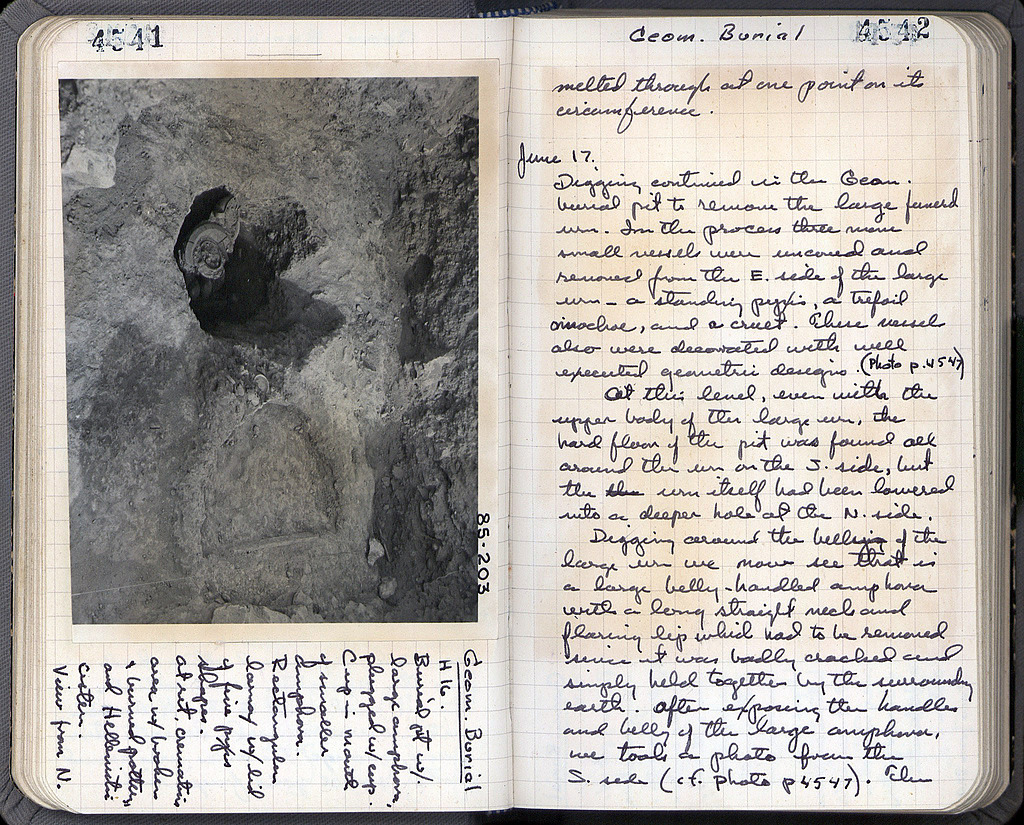 4541
85-203
Geom. Burial
H 16.
Burial pit w/
large amphora,
plugged w/ cup.
Cup in mouth
of smaller
amphora.
Rectangular
larnax w/ lid
of five pyxis
shapes.
at rt. cremation
area w/ broken
& burned pottery
and Hellenistic
cistern.
View from N.
4542
Geom. Burial
melted through at one point on its
circumference.
June 17.
Digging continued in the Geom.
burial pit to remove the large funeral
urn. In the process three more
small vessels were uncovered and
removed from the E. side of the large
urn – a standing pyxis, a trefoil
oinochoe, and a cruet. These vessels
also were decorated with well
executed geometric designs. (Photo p. 4547)
At this level, even with the
upper body of the large urn, the
hard floor of the pit was found all
around the urn on the S. side, but
the urn itself had been lowered
into a deeper hole at the N. side.
Digging around the belly of the
large urn we now see that is
a large belly-handled amphora
with a long straight neck and
flaring lip which had to be removed
since it was badly cracked and
simply held together by the surrounding
earth. After exposing the handles
and belly of the large amphora,
we took a photo from the
S. side (cf. photo p 4547). The